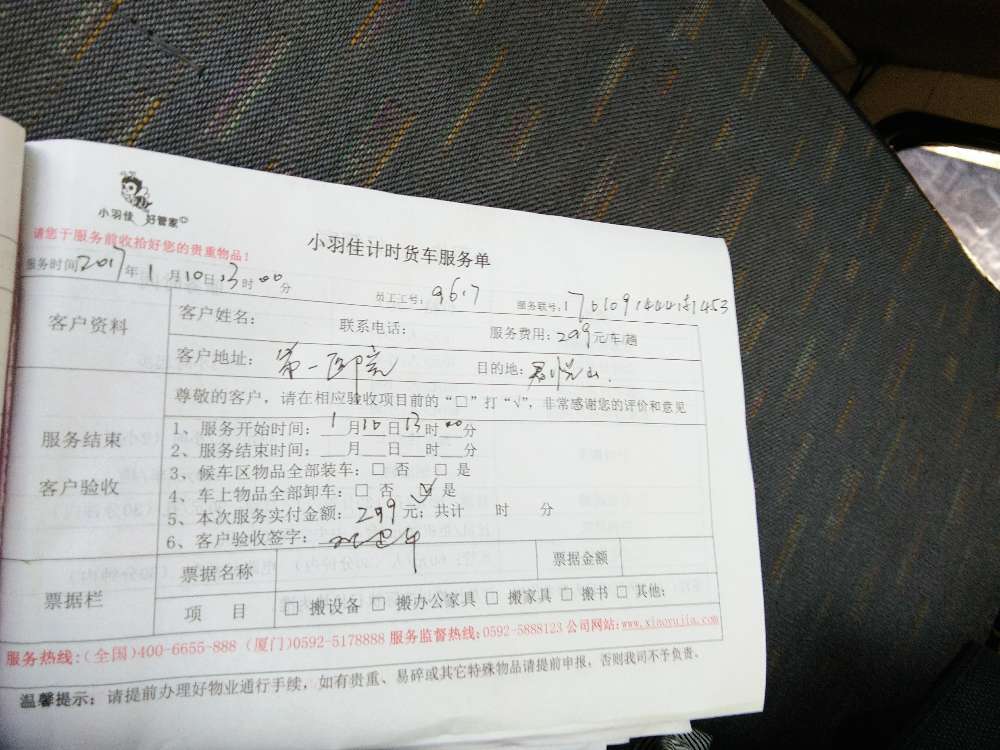 小羽佳 好管家
小羽佳计时货车服务单
请您于服务前收拾好您的贵重物品！
服务时间2017年1月10日13时00分 员工工号：9617 服务联号：
客户资料
客户姓名： 联系电话： 服务费用：299元/车/趟
客户地址：第一医院 目的地：君悦山.
服务结束
客户验收
尊敬的客户，请在相应验收项目前的“□”打“√”，非常感谢您的评价和意见
1、服务开始时间：1月10日13时00分
2、服务结束时间：___月___日___时___分
3、候车区物品全部装车：□ 否 □ 是
4、车上物品全部卸车：□ 否 ☑ 是
5、本次服务实付金额：299元；共计 时 分
6、客户验收签字：
票据栏
票据名称 票据金额
项 目 □ 搬设备 □ 搬办公家具 □ 搬家具 □ 搬书 □ 其他：
服务热线：(全国)400-6655-888 (厦门)0592-5178888 服务监督热线：0592-5888123 公司网站：www.xiaoyujia.com
温馨提示：请提前办理好物业通行手续，如有贵重、易碎或其它特殊物品请提前申报，否则我司不予负责。